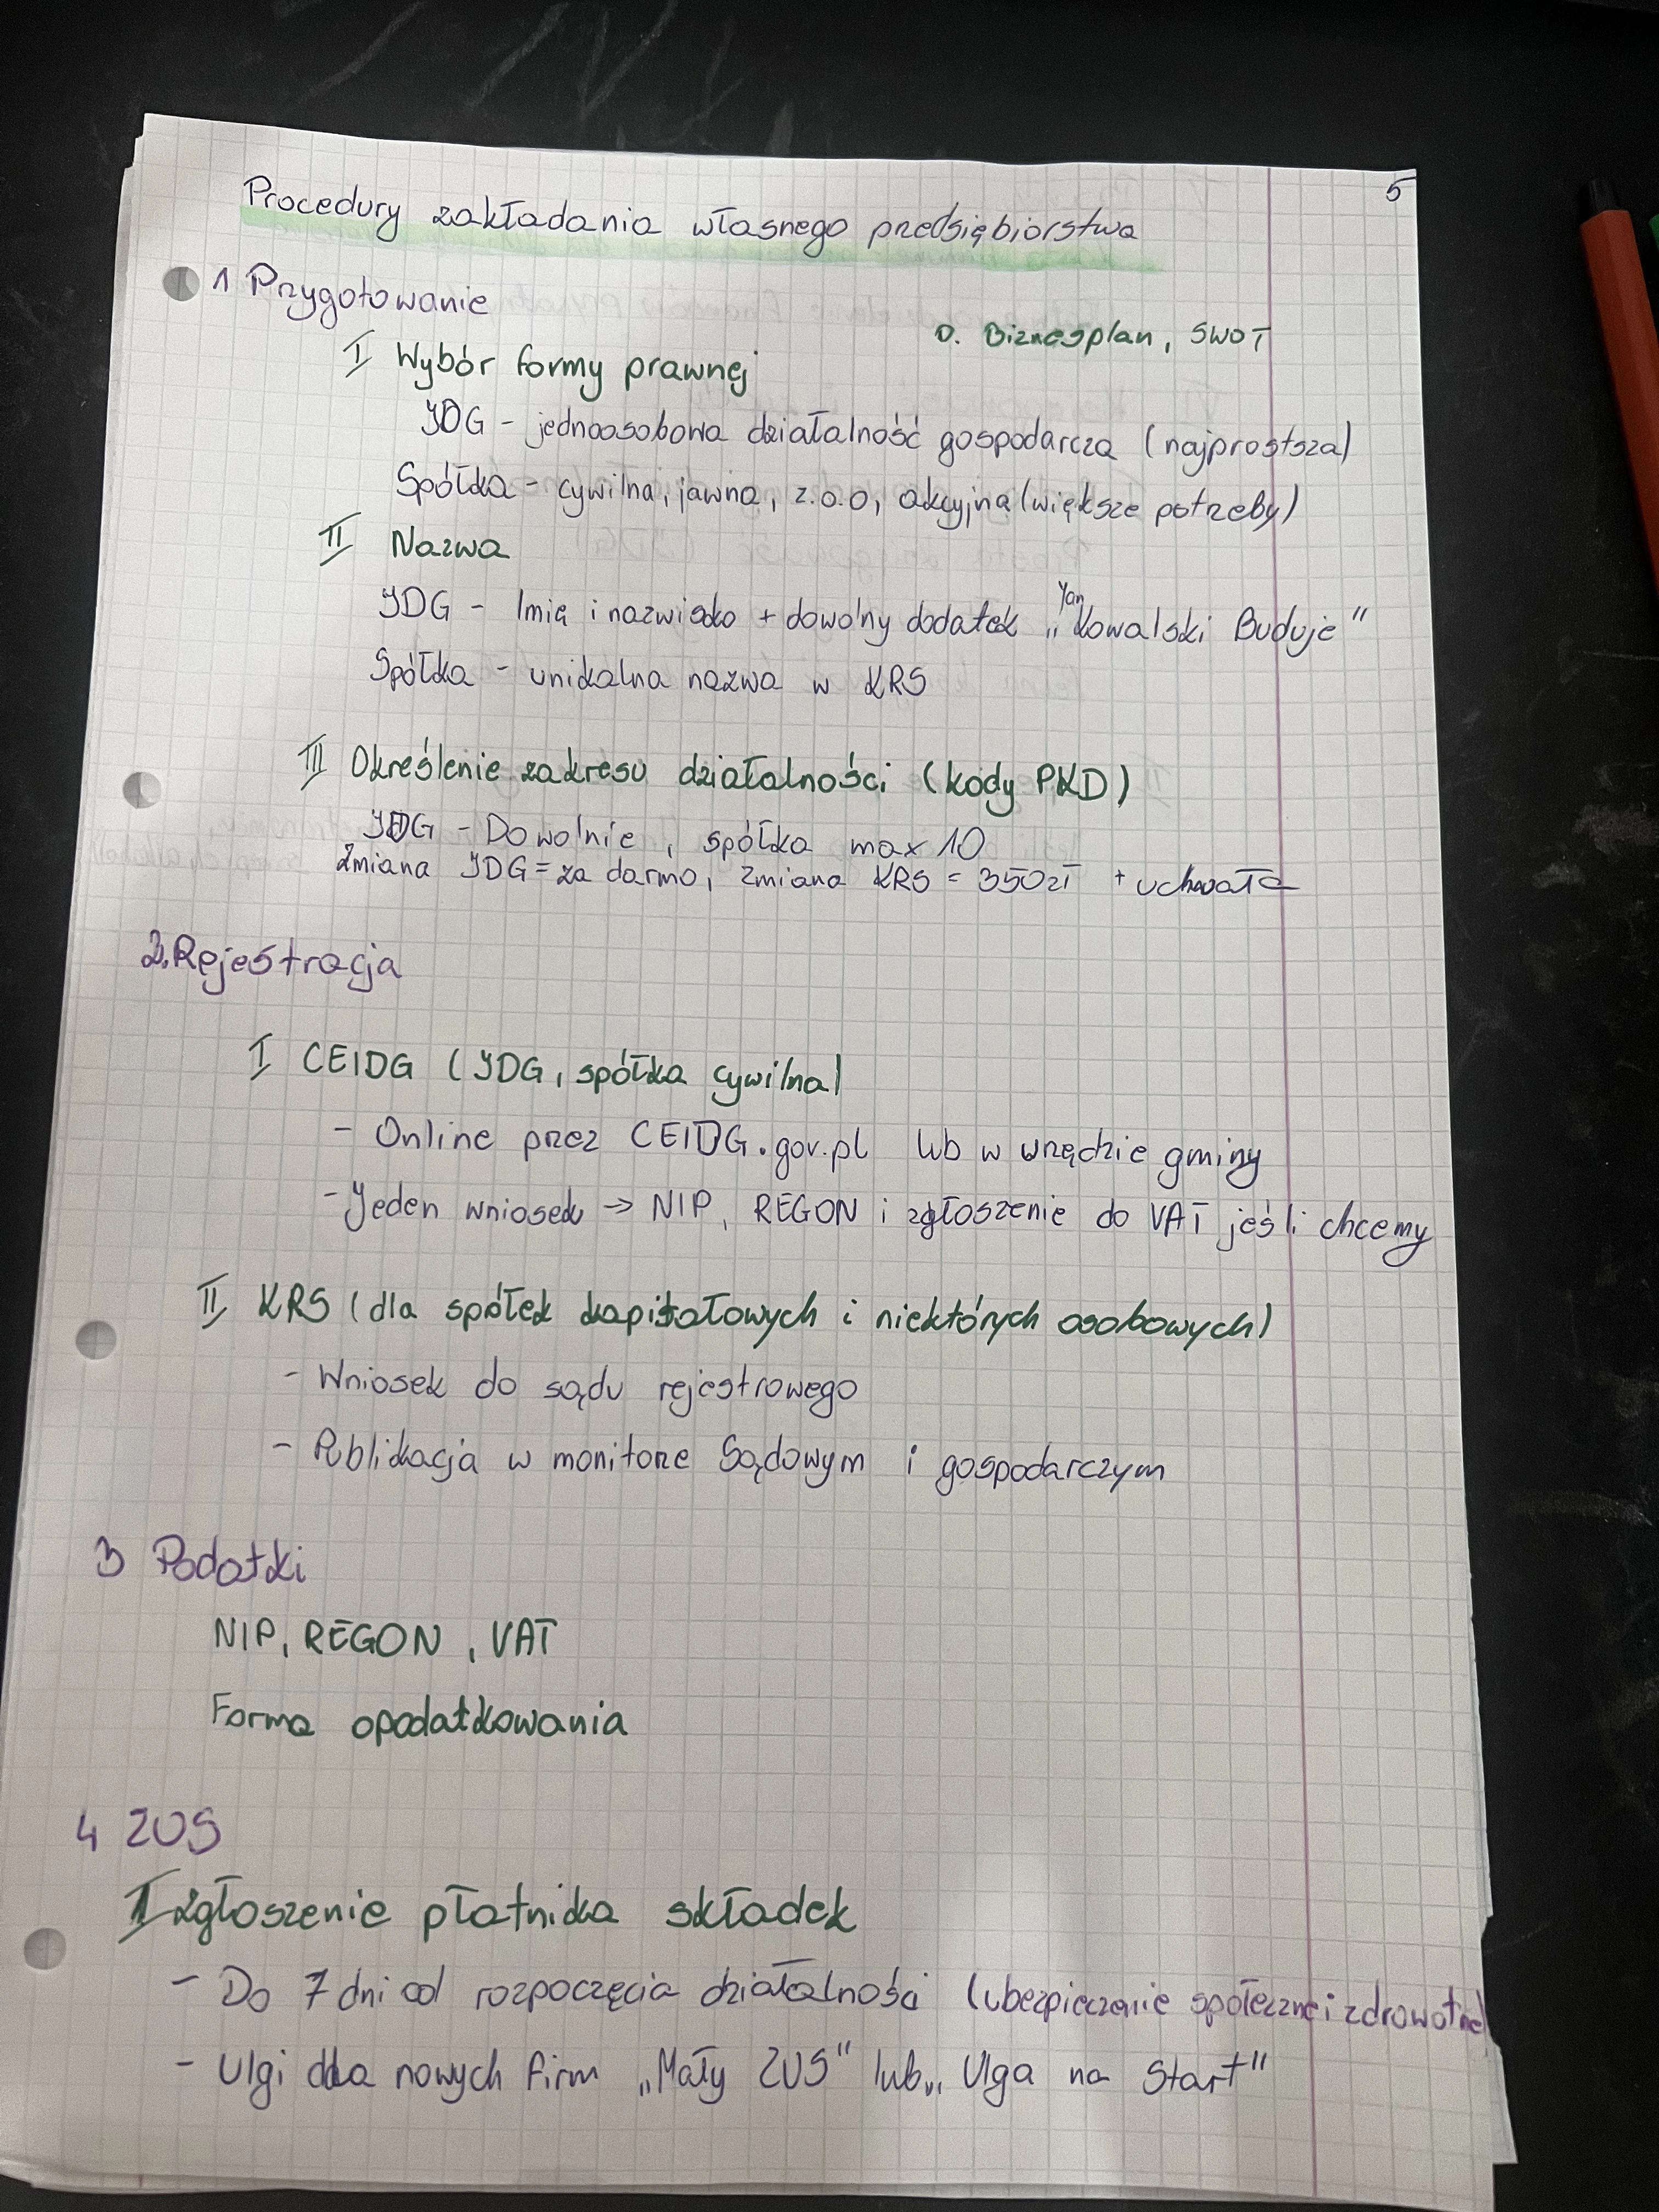 5
Procedury zakładania własnego przedsiębiorstwa
1 Przygotowanie
0. Biznesplan, SWOT
I Wybór formy prawnej
JDG - jednoosobowa działalność gospodarcza (najprostsza)
Spółka - cywilna, jawna, z.o.o, akcyjna (większe potrzeby)
II Nazwa
JDG - Imię i nazwisko + dowolny dodatek „Jan Kowalski Buduje"
Spółka - unikalna nazwa w KRS
III Określenie zakresu działalności (kody PKD)
JDG - Dowolnie, spółka max 10
zmiana JDG = za darmo, zmiana KRS = 350zł + uchwała
2. Rejestracja
I CEIDG (JDG, spółka cywilna)
- Online przez CEIDG.gov.pl lub w urzędzie gminy
- Jeden wniosek → NIP, REGON i zgłoszenie do VAT jeśli chcemy
II KRS (dla spółek kapitałowych i niektórych osobowych)
- Wniosek do sądu rejestrowego
- Publikacja w monitorze Sądowym i gospodarczym
3 Podatki
NIP, REGON, VAT
Forma opodatkowania
4 ZUS
I zgłoszenie płatnika składek
- Do 7 dni od rozpoczęcia działalności (ubezpieczenie społeczne i zdrowotne)
- Ulgi dla nowych firm „Mały ZUS" lub „Ulga na Start"